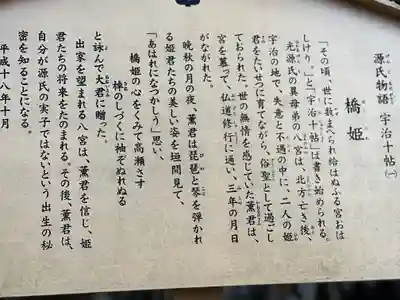 源氏物語 宇治十帖(一)
橋姫
「その頃、世に数まへられ給はぬふる宮おは
しけり。」と『宇治十帖』は書き始められる。
光源氏の異母弟の八宮は、北方亡き後、
宇治の地で、失意と不遇の中に、二人の姫
君をたいせつに育てながら、俗聖として過ごし
ておられた。世の無情を感じていた薫君は、
宮を慕って仏道修行に通い、三年の月日
がながれた。
晩秋の月の夜、薫君は琵琶と琴を弾かれ
る姫君たちの美しい姿を垣間見て、
「あはれになつかしう」思い、
橋姫の心をくみて高瀬さす
棹のしづくに袖ぞぬれぬる
と詠んで大君に贈った。
出家を望まれる八宮は、薫君を信じ、姫
君たちの将来をたのまれる。その後、薫君は、
自分が源氏の実子ではないという出生の秘
密を知ることになる。
平成十八年十月